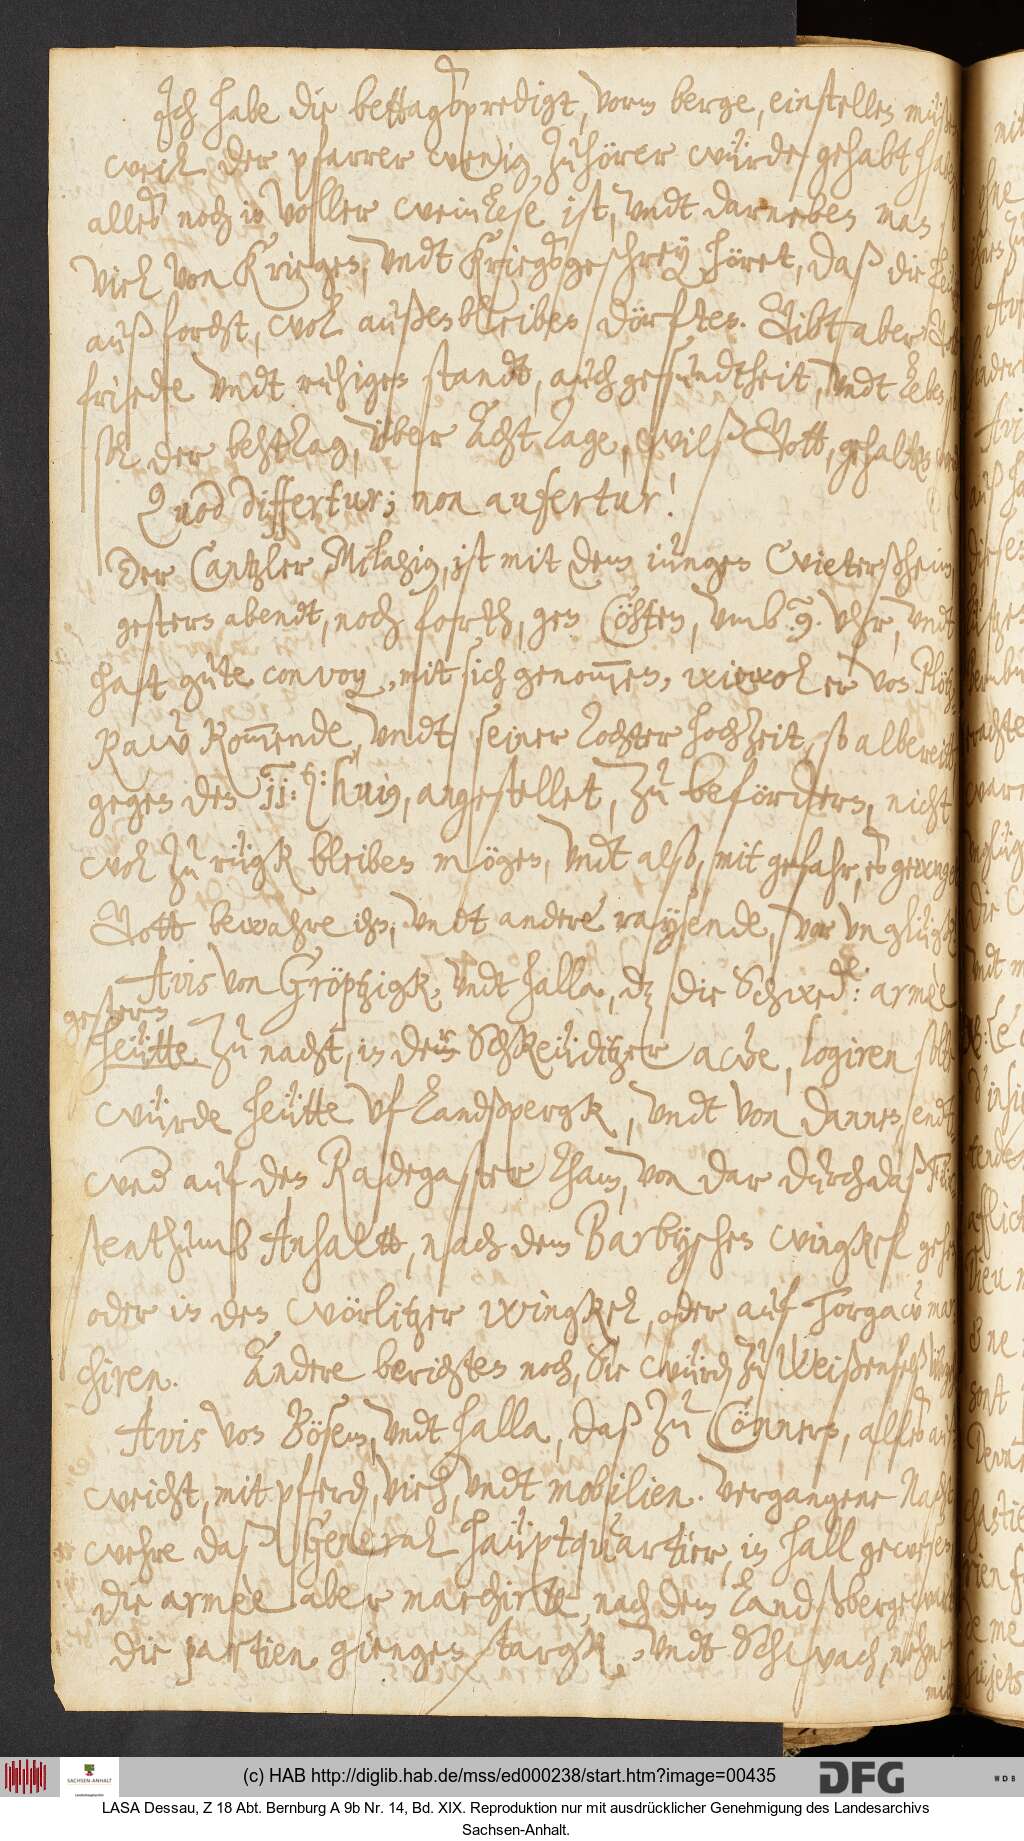 Ich habe die bettagspredigt, vorm berge, einstellen müßen
weil der pfarrer wenig Zuhörer würde gehabt haben
alles noch in voller weinlese ist, undt darneben man so
viel von Krieges, undt Kriegsgeschrey, höret, daß die
auß forcht, wol außenbleiben dörften. Gibt aber Gott
friede undt ruhigen standt, auch gesundtheit, undt leben so
sol der behttag, über acht tage, wils Gott, gehalten
Quod differtur; non aufertur!
Der Cantzler Milagiy, ist mit dem iungen Wietersheim
gestern abendt, noch forth, gen Cöhten, umb .9. uhr, undt
hatt gute convoy, mit sich genommen, wiewol er von Plötz¬
kaw kommende, undt seiner Tochter hochzeit, so albereitt
gegen den 11. huius, angestellet, zu befördern, nicht
wol zu rügk bleiben mögen, undt also, mit gefahr, es gewagt
Gott bewahre ihn, undt andere raysende, vor unglügk
Avis von Gröptzigk, undt Halla, dz die Schwed: armèe
gestern
heütte zu nacht, in der Schkeüditzer awe, logiren solte
würde heütte uf Landßpergk, undt von dannen endt¬
wed auf den Radegaster Tham, von dar durch daß Für¬
stenthumb Anhaltt, nach dem Barbyschen wingkel gehen
oder in den Wörlitzer wingkel, oder auf Torgaw mar¬
chiren. Andere berichten noch, Sie würden zu Weißenfelß
Avis von Bösem, undt Halla, daß zu Cönnern, alles auß
weicht, mit pferden, vieh, undt mobilien. Vergangene Nacht
wehre daß General Hauptquartier, in Hall gewesen
die armèe aber marchirte, nach dem Landßberge warts
die partien giengen stargk, undt Schwach, nehmen
mit
(c) HAB http://diglib.hab.de/mss/ed000238/start.htm?image=00435
SACHSEN-ANHALT
DFG
WDB
LASA Dessau, Z 18 Abt. Bernburg A 9b Nr. 14, Bd. XIX. Reproduktion nur mit ausdrücklicher Genehmigung des Landesarchivs
Sachsen-Anhalt.